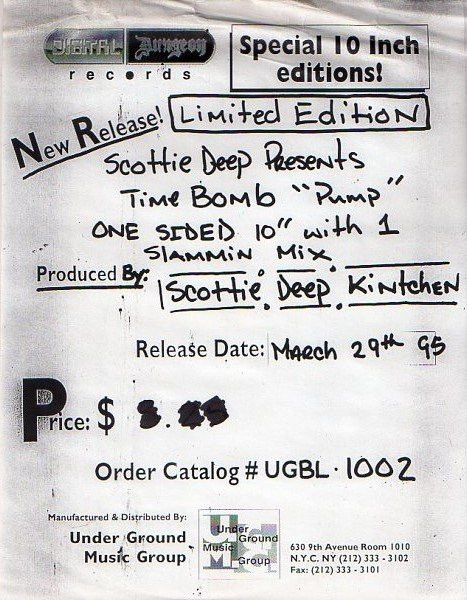 DIGITAL Dungeon
records
Special 10 inch
editions!
New Release! Limited Edition
Scottie Deep Presents
Time Bomb "Pump"
ONE SIDED 10" with 1
Slammin Mix
Produced By:
Scottie. Deep. Kintchen
Release Date: March 29th 95
Price: $
Order Catalog # UGBL · 1002
Manufactured & Distributed By:
Under Ground
Music Group
Under
Ground
Music
Group
630 9th Avenue Room 1010
N.Y.C. NY (212) 333 - 3102
Fax: (212) 333 - 3101